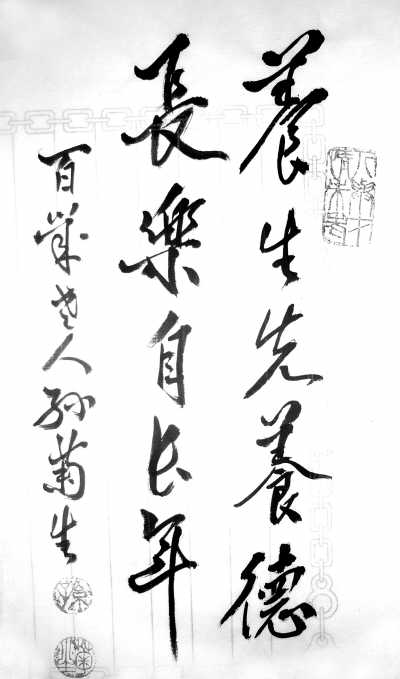 養生先養德
長樂自长年
百歲老人孫菊生